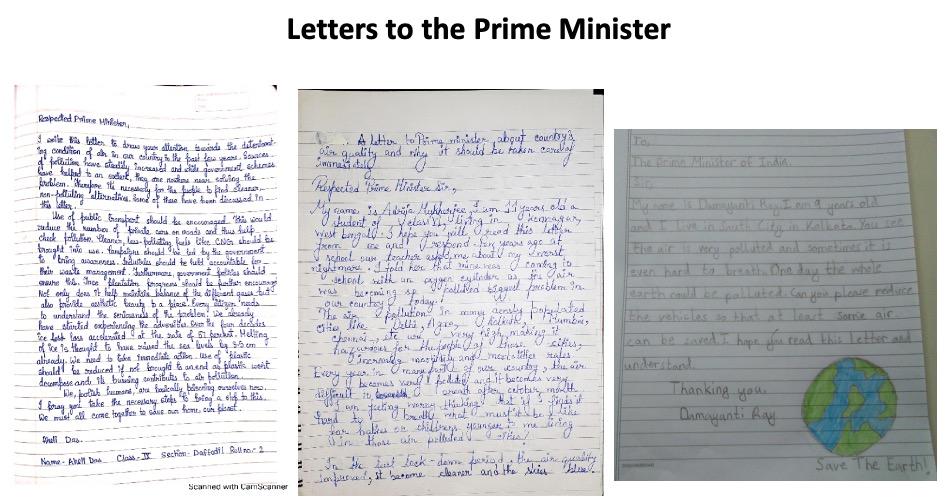 Letters to the Prime Minister
Respected Prime Minister,
I write this letter to draw your attention towards the deteriorat-
ing condition of air in our country in the past few years. Sources
of pollution have steadily increased and while government schemes
have helped to an extent, they are nowhere near solving the
problem. Therefore its necessary for the people to find cleaner,
non-polluting alternatives. Some of these have been discussed in
this letter.
Use of public transport should be encouraged. This would
reduce the number of private cars on roads and thus help
check pollution. Cleaner, less-polluting fuels like CNG should be
brought into use. Campaigns should be led by the government
to bring awareness. Industries should be held accountable for
their waste management. Furthermore, government policies should
ensure this. Tree plantation programs should be further encouraged
Not only does it help maintain balance of the different gases but
also provide aesthetic beauty to a place. Every citizen needs
to understand the seriousness of the problem. We already
have started experiencing the adversities. Over the four decades
ice loss accelerated at the rate of 57 percent. Melting
of ice is thought to have raised the sea levels by 3.5 cm
already. We need to take immediate action. Use of plastic
should be reduced if not brought to an end as plastic won't
decompose and its burning contributes to air pollution.
We, foolish humans, are basically poisoning ourselves now.
I pray you take the necessary steps to bring a stop to this.
We must all come together to save our home, our planet.
Aheli Das.
Name- Aheli Das Class- IX Section- Daffodil Roll no- 2
Scanned with CamScanner
A letter to Prime minister, about country's
air quality and why it should be taken care of
immediately
Respected Prime Minister Sir,
My name is Mukherjee, I am 11 years old a
student of class VI, living in Konnagar,
West Bengal. I hope you will read this letter
from me and respond. Few years ago at
school our teacher asked me about my worst
nightmare. I told her that mine was coming to
school with an oxygen cylinder as the air
was becoming so polluted biggest problem in
our country today!
The air pollution in many densely populated
cities like Delhi, Agra, Kolkata, Mumbai,
Chennai, etc are very high, making it
hazardous for the people of those cities,
increasing mortality and rates.
Every year in many parts of our country, the air
becomes very polluted and it becomes very
difficult to breath after october month.
I am feeling worry thinking that if I finds it
hard to breath, what must be it like
for babies or childrens younger to me living
in those air polluted cities!
In the last lock-down period, the air quality
improved, it become cleaner and the skies blue.
To,
The Prime Minister of India.
Sir,
My name is Damayanti Ray. I am 9 years old
and I live in South City in Kolkata. You see
the air is very polluted and sometimes it is
even hard to breath. One day the whole
earth could be polluted. Can you please reduce
the vehicles so that at least some air
can be saved. I hope you read this letter and
understand.
Thanking you.
Damayanti Ray
Save The Earth!